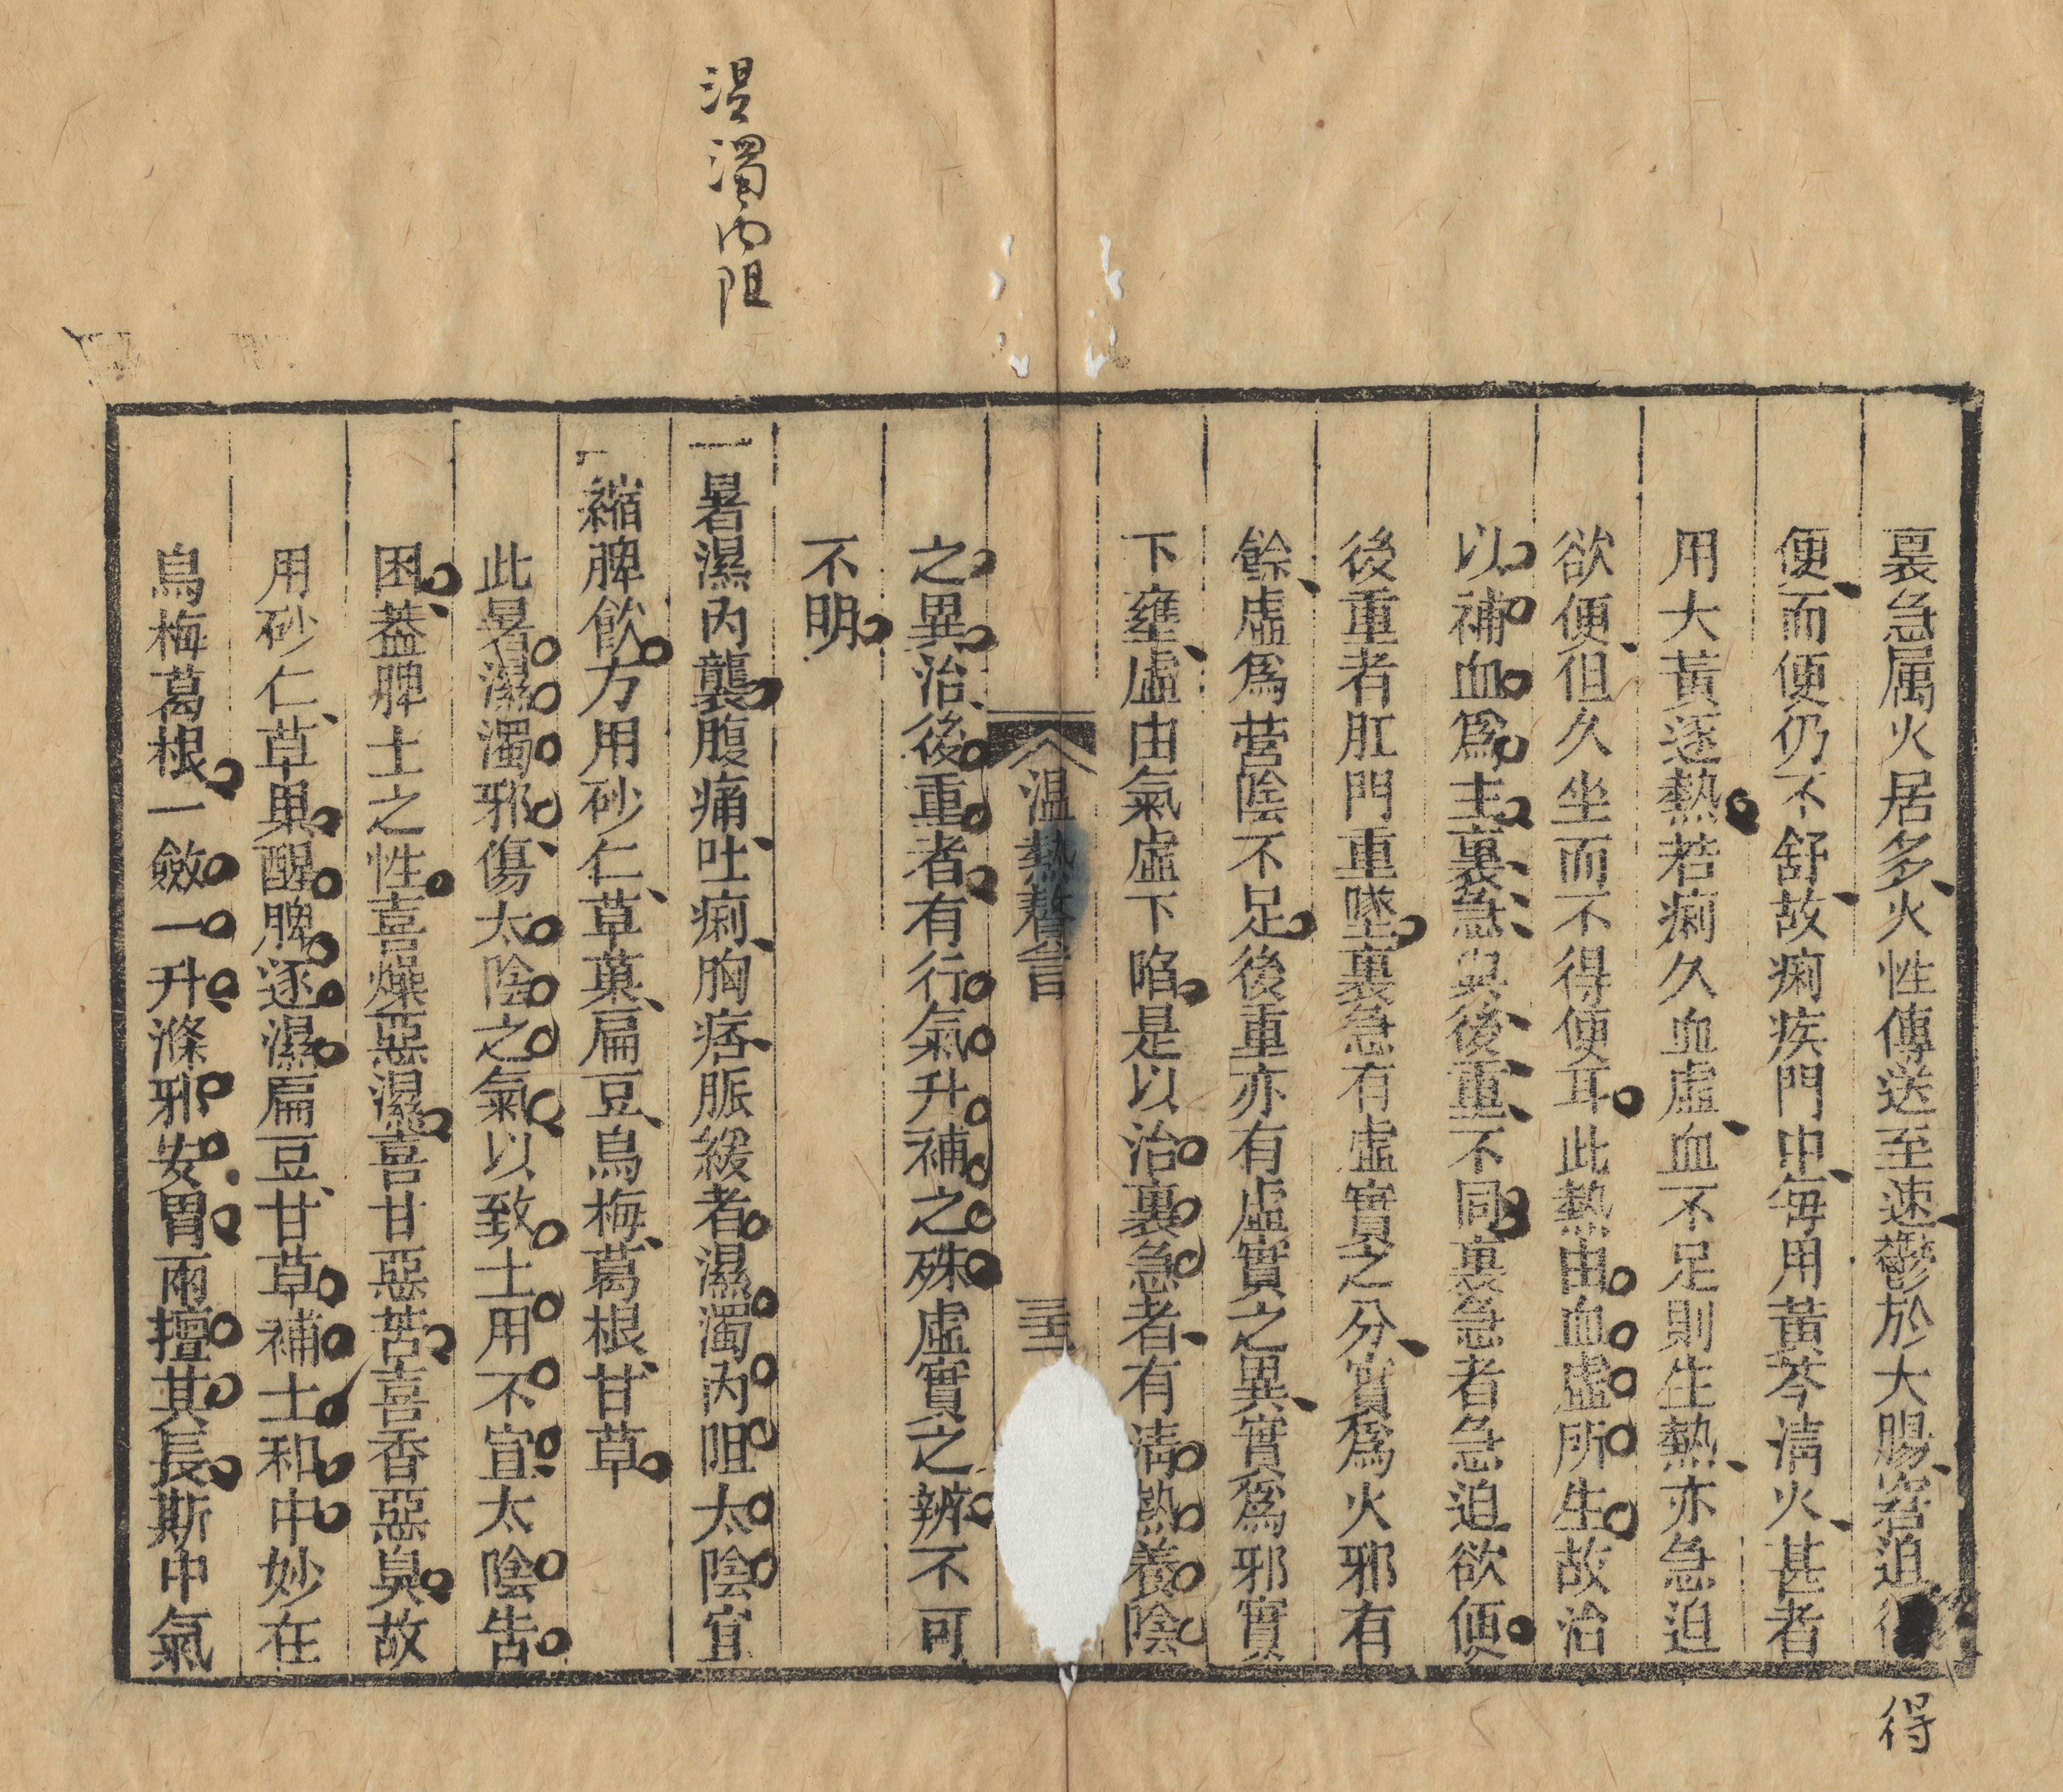 裏急属火居多火性傳送至速鬱於大腸窘迫
得
便而便仍不舒故痢疾門中每用黃芩淸火甚者
用大黃逐熱若痢久血虛血不足則生熱亦急迫
欲便但久坐而不得便耳此熱由血虛所生故治
以補血爲主裏急與後重不同裏急者急迫欲便
後重者肛門重墜裏急有虛實之分實爲火邪有
餘虛爲營陰不足後重亦有虛實之異實爲邪實
下壅虛由氣虛下陷是以治裏急者有淸熱養陰
温熱贅言
之異治後重者有行氣升補之殊虛實之辨不可
不明
濕濁内阻
一暑濕內襲腹痛吐痢胸痞脈緩者濕濁內阻太陰宜
縮脾飮方用砂仁草菓扁豆烏梅葛根甘草
此暑濕濁邪傷太陰之氣以致土用不宣太陰告
困蓋脾土之性喜燥惡濕喜甘惡苦喜香惡臭故
用砂仁草果醒脾逐濕扁豆甘草補土和中妙在
烏梅葛根一斂一升滌邪安胃兩擅其長斯中氣